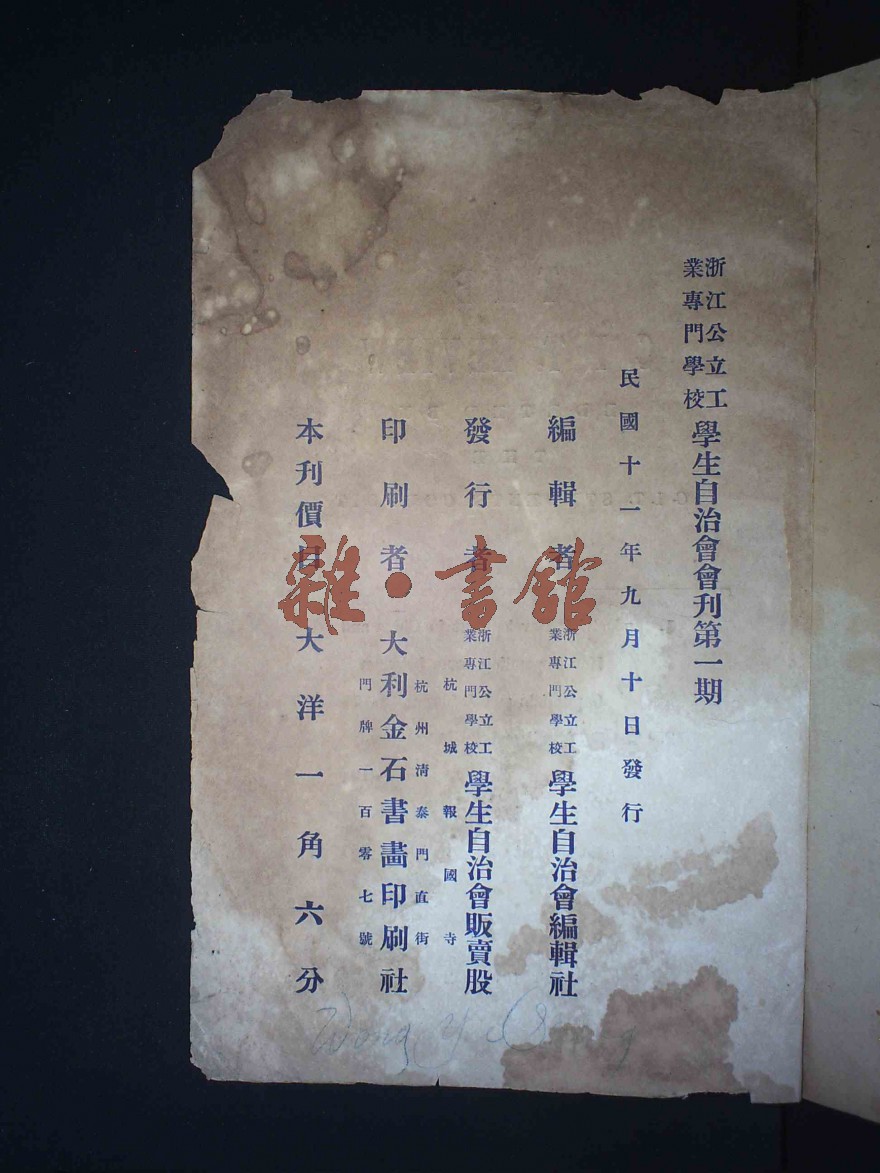 浙江公立工業專門學校學生自治會會刊第一期
民國十一年九月十日發行
編輯者 浙江公立工業專門學校學生自治會編輯社
發行者 浙江公立工業專門學校學生自治會販賣股
杭城報國寺
杭州清泰門直街
印刷者 大利金石書畫印刷社
門牌一百零七號
本刊價目 大洋一角六分
雜·書館
Wong Y.